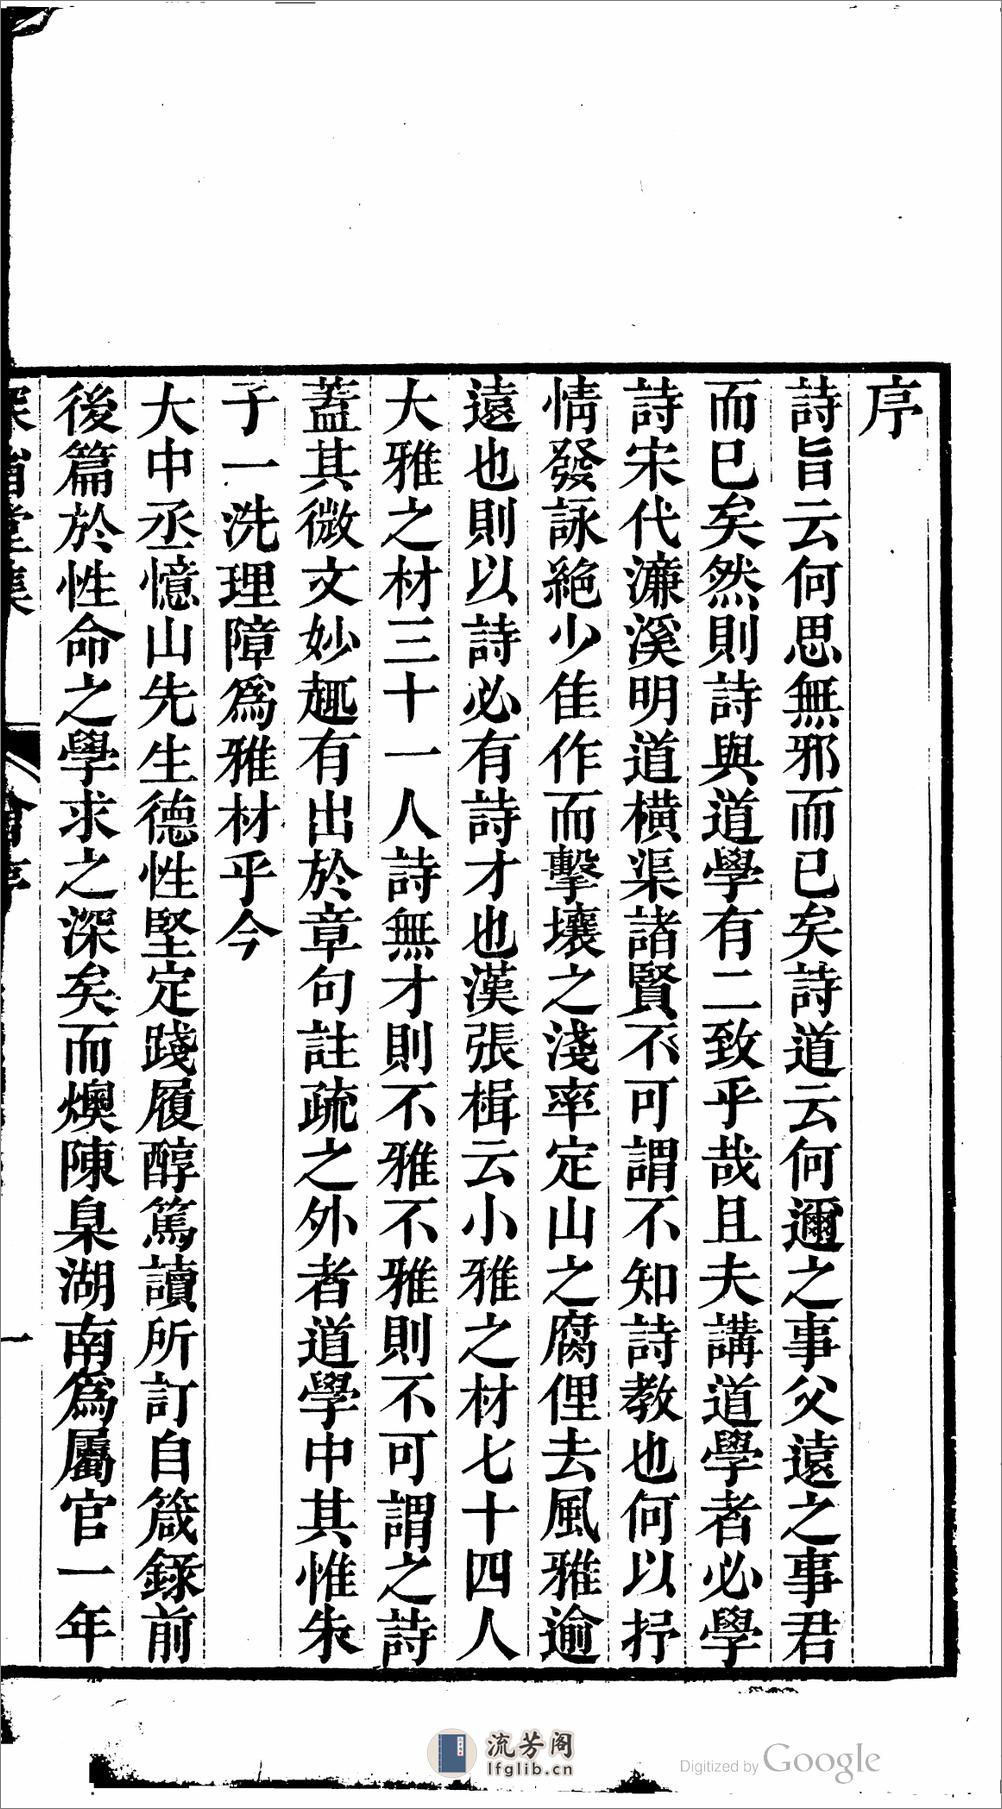 序
詩旨云何思無邪而已矣詩道云何邇之事父遠之事君
而已矣然則詩與道學有二致乎哉且夫講道學者必學
詩宋代濂溪明道橫渠諸賢不可謂不知詩教也何以抒
情發詠絕少佳作而擊壤之淺率定山之腐俚去風雅逾
遠也則以詩必有詩才也漢張楫云小雅之材七十四人
大雅之材三十一人詩無才則不雅不雅則不可謂之詩
蓋其微文妙趣有出於章句註疏之外者道學中其惟朱
子一洗理障爲雅材乎今
大中丞憶山先生德性堅定踐履醇篤讀所訂自箴錄前
後篇於性命之學求之深矣而燠陳臬湖南爲屬官一年
堂集
序
一
流芳阁
lfglib.cn
Digitized by Google